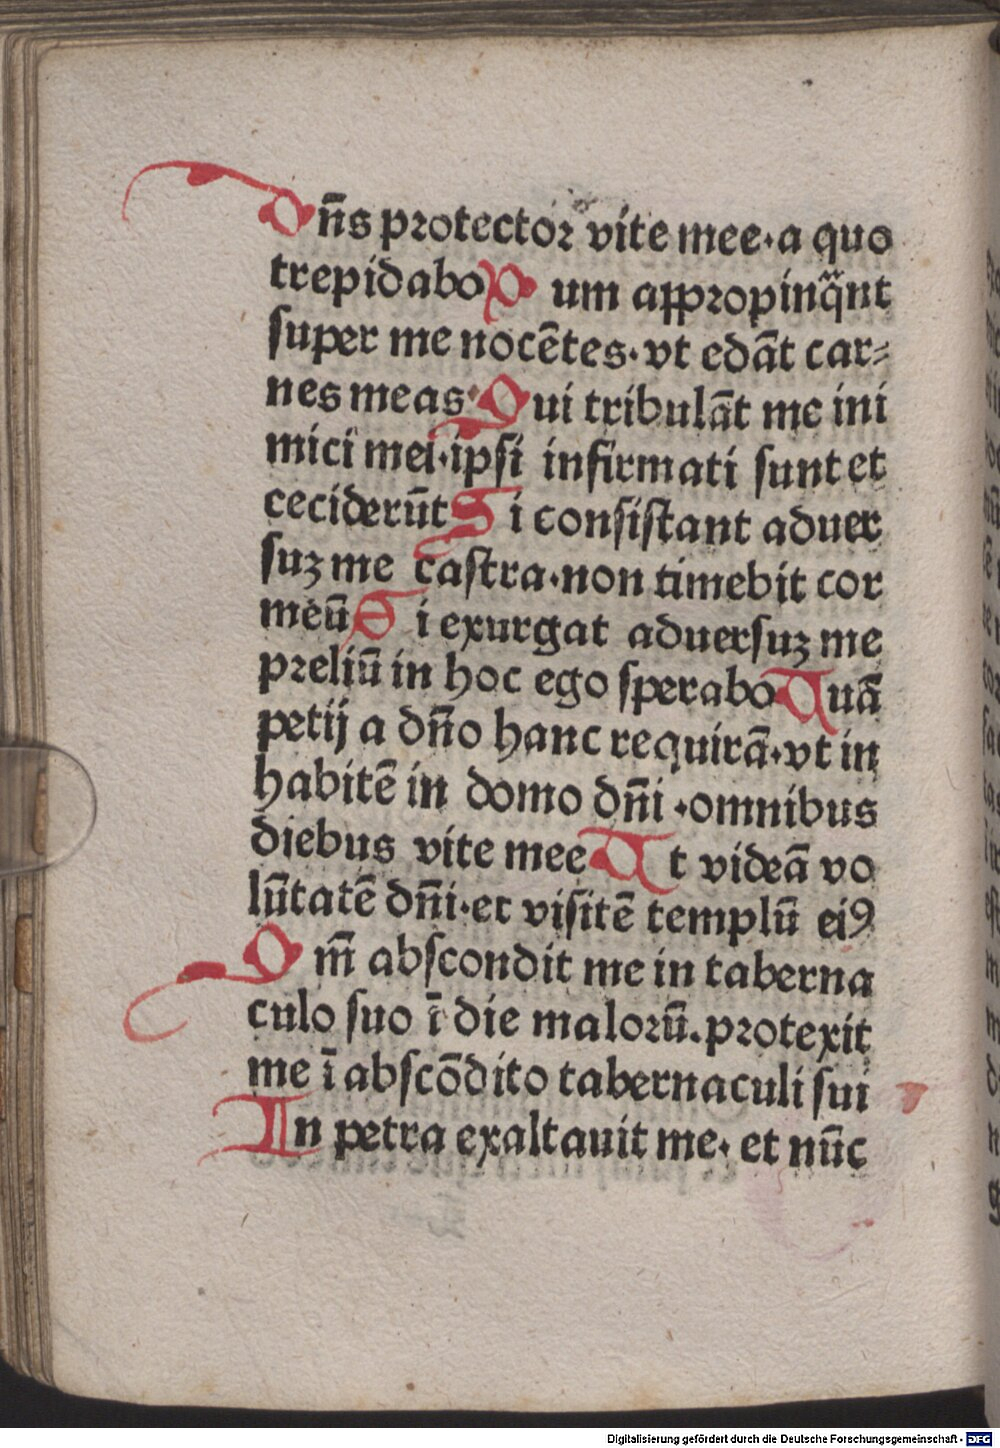 Dn̄s protector vite mee·a quo
trepidabo D um appropinq̄nt
super me nocētes·vt edāt car⸗
nes meas· Qui tribulāt me ini
mici mei·ipsi infirmati sunt et
ceciderūt Si consistant aduer
suꝫ me castra·non timebit cor
meū Si exurgat aduersuꝫ me
preliū in hoc ego sperabo Unā
petij a dn̄o hanc requirā·vt in
habitē in domo dn̄i·omnibus
diebus vite mee Ut videā vo
lūtatē dn̄i·et visitē templū eiꝯ
Qm̄ abscondit me in taberna
culo suo ī die malorū.protexit
me ī abscōdito tabernaculi sui
In petra exaltauit me· et nūc
Digitalisierung gefördert durch die Deutsche Forschungsgemeinschaft - DFG